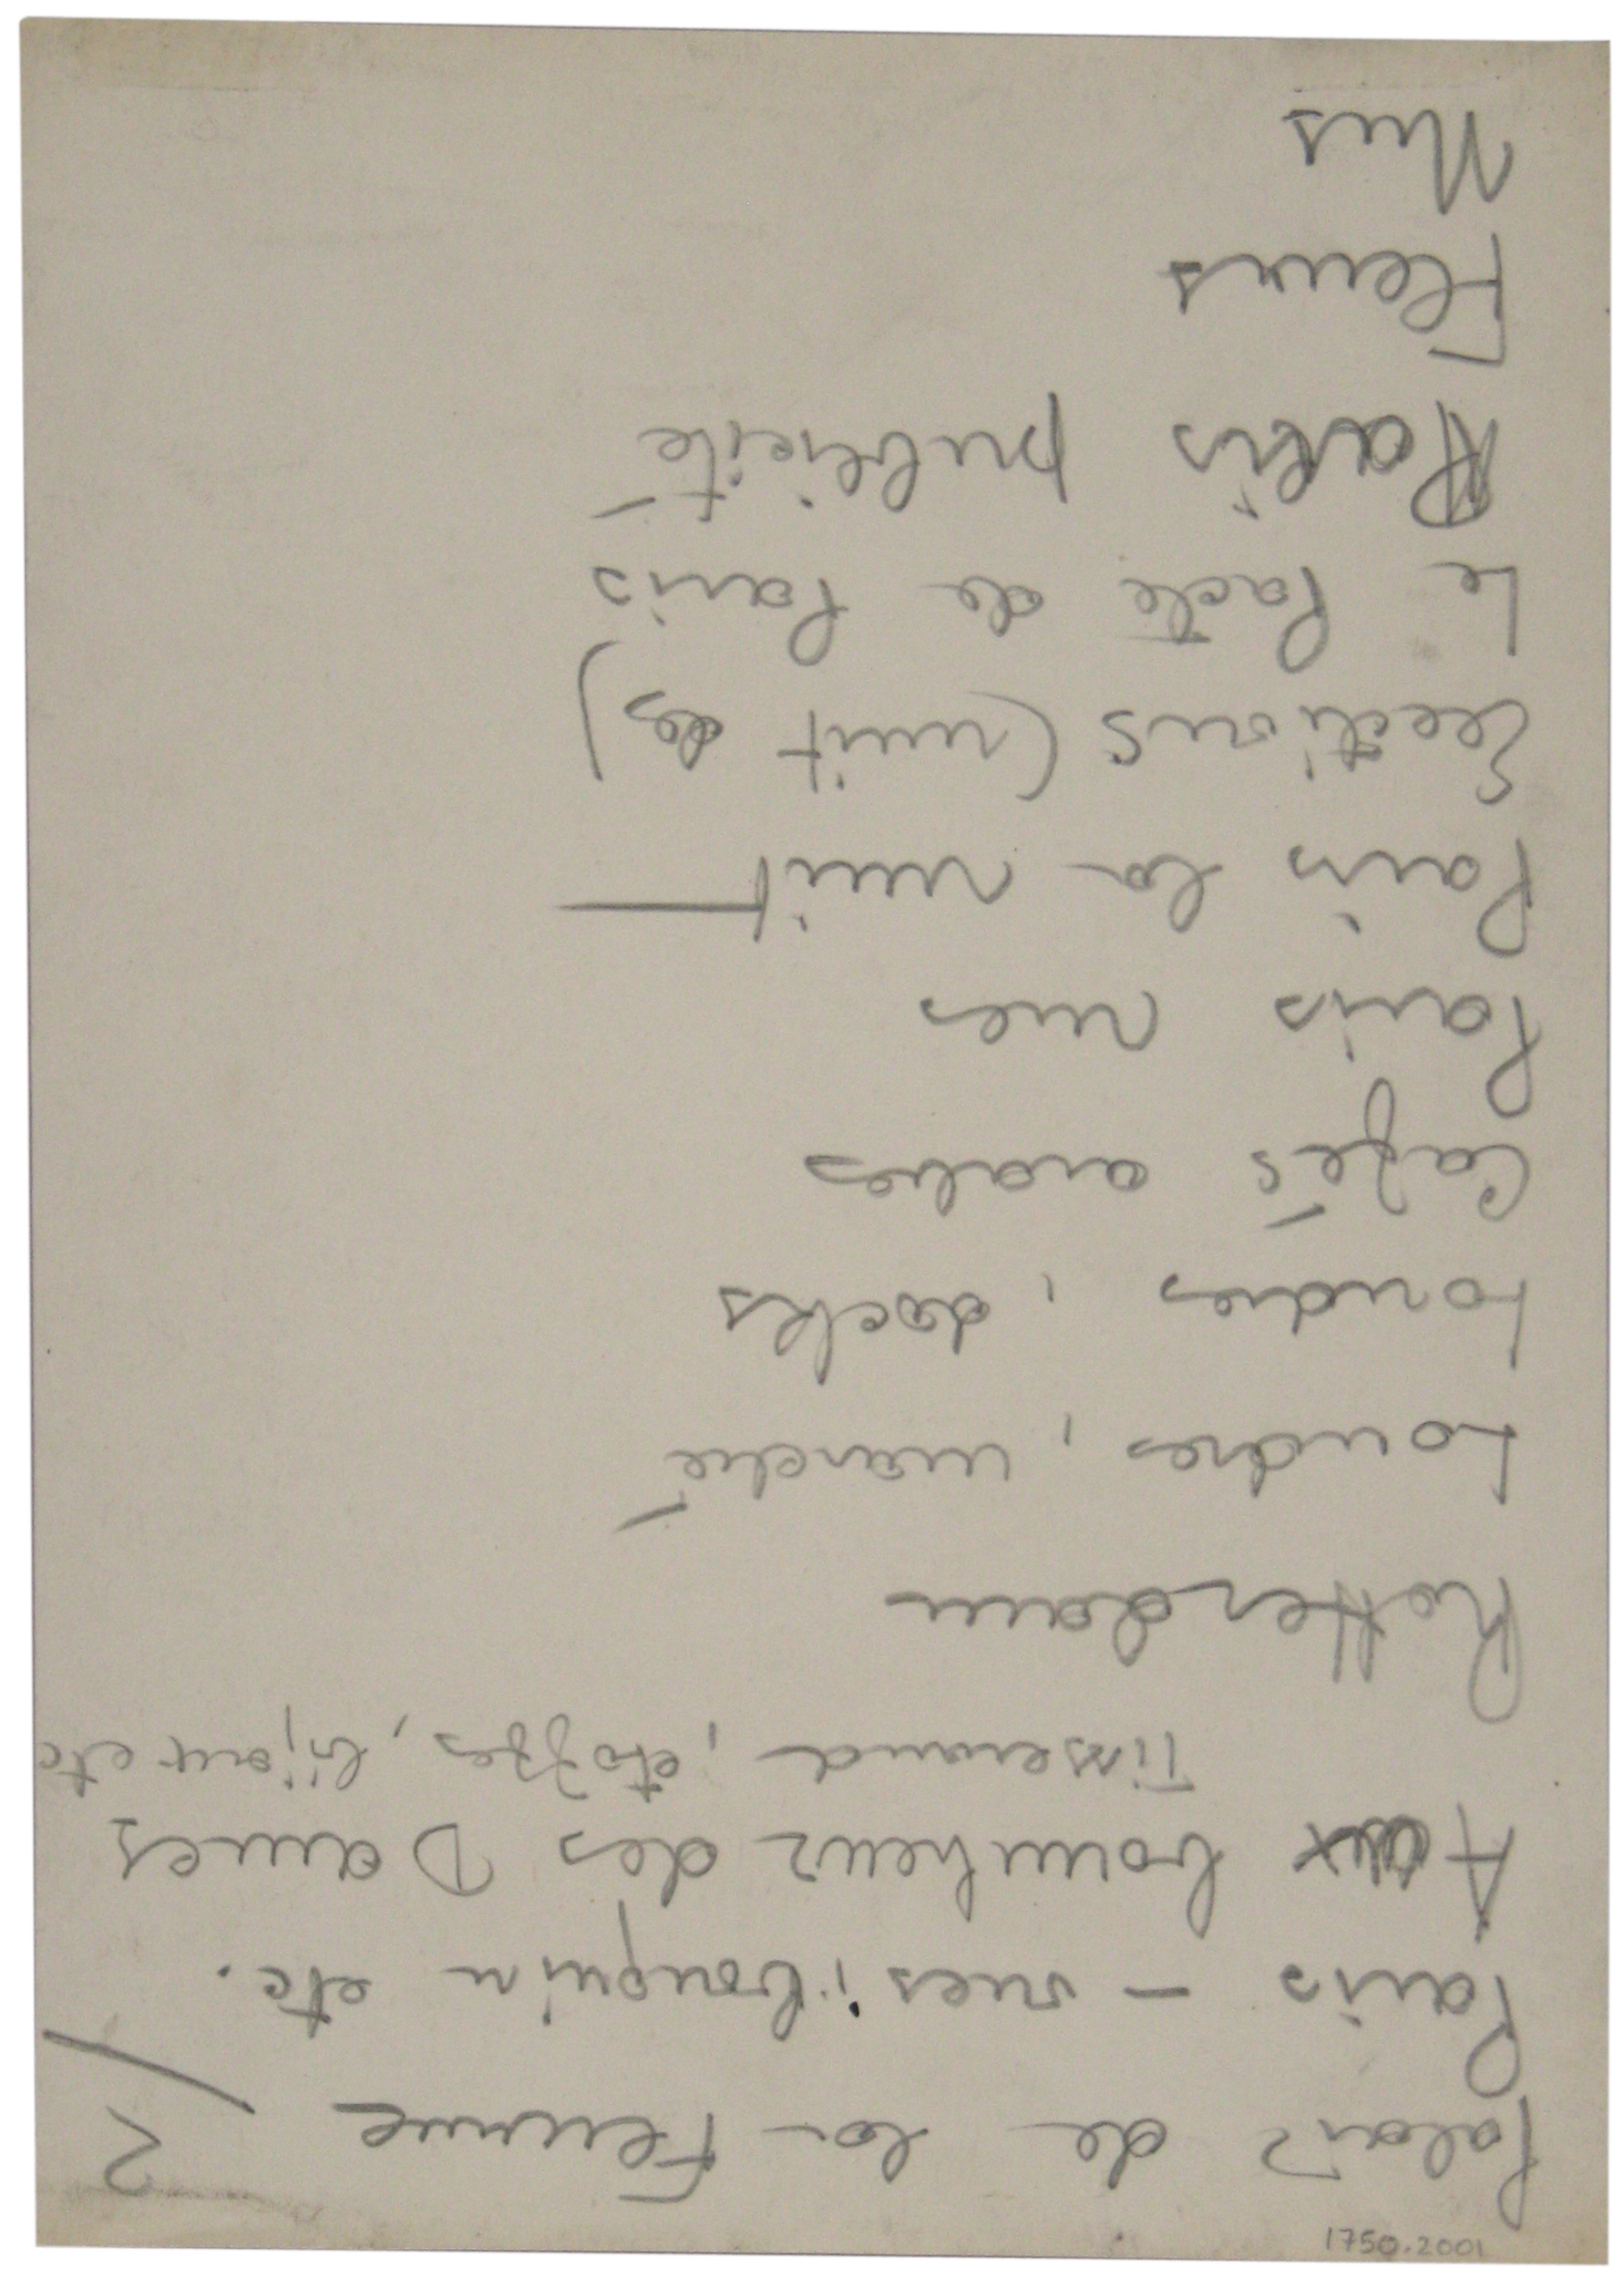 Palais de la Femme 2/
Paris – rues; bouquin etc.
Aux bonheur des Dames
Tisserand, étoffes, bijoux etc
Rotterdam
Londres, marché
Londres, docks
Cafés arabes
Paris rues
Paris la nuit
Elections (nuit des)
Le Pacte de Paris
Paris publicité
Fleurs
Nus
1750.2001